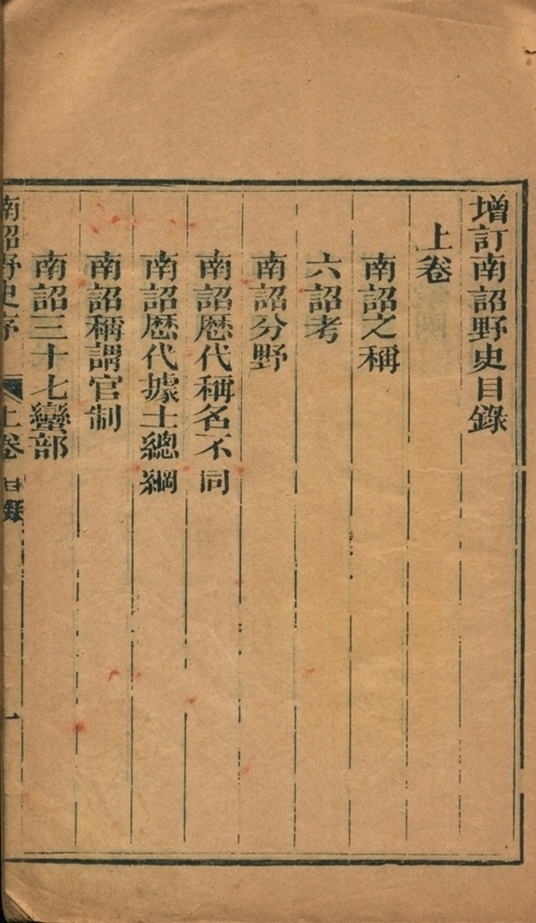 增訂南詔野史目錄
上卷
南詔之稱
六詔考
南詔分野
南詔歷代稱名不同
南詔歷代據土總綱
南詔稱謂官制
南詔三十七蠻部
南詔野史序 上卷 目錄 一